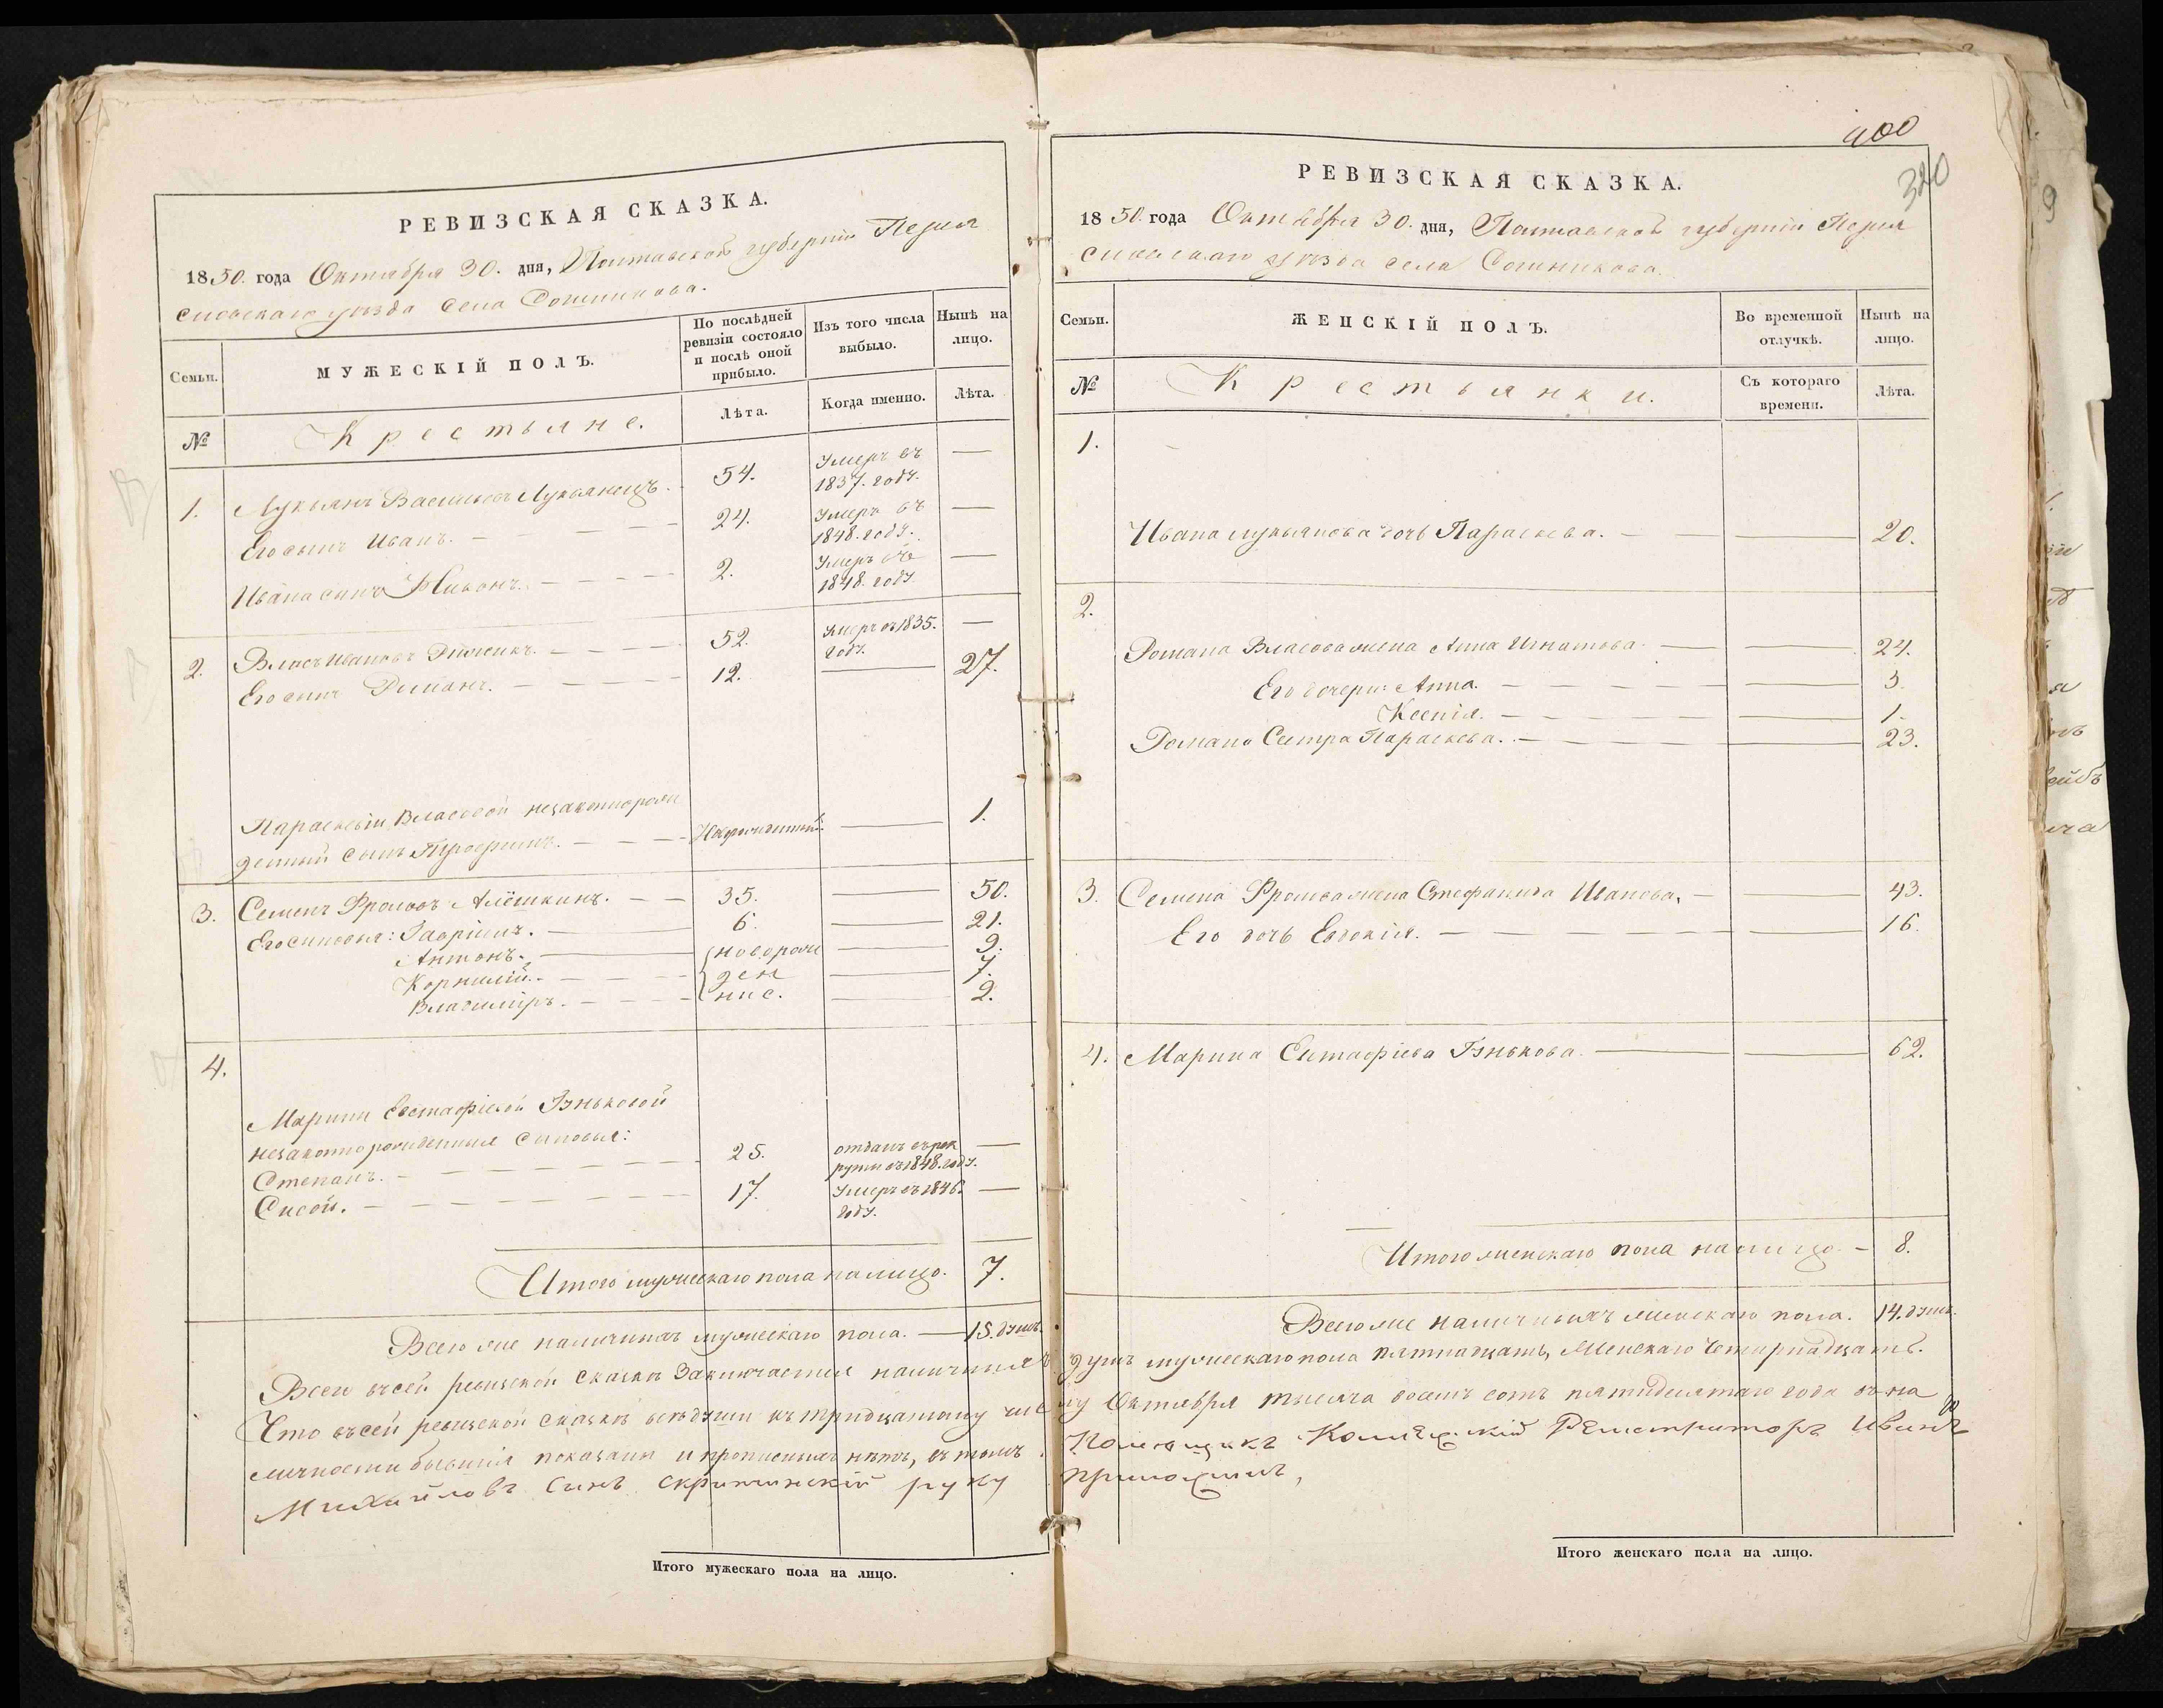 РЕВИЗСКАЯ СКАЗКА.
1850. года Октября 30. дня, Полтавской губерніи Перея
славскаго уѣзда села Сошникова.
Семьи.
МУЖЕСКІЙ ПОЛЪ.
По послѣдней ревизіи состояло и послѣ оной прибыло.
Изъ того числа выбыло.
Нынѣ на лицо.
№
Крестьяне.
Лѣта.
Когда именно.
Лѣта.
1. Лукьянъ Васильевъ Лукьянецъ. 54. Умеръ въ 1837. году. —
Его сынъ Иванъ. — — — 24. Умеръ въ 1848. году. —
Ивана синъ Никонъ. — — — 2. Умеръ въ 1848. году —
2. Власъ Ивановъ 52. умеръ въ 1835. году. —
Его синъ Романъ. — — — 12. — 27.
Параскевіи Власовой незаконнорож
денный сынъ Трофимъ. — — — Новорожденный. — 1.
3. Семенъ Фроловъ Алёшкинъ. — — 35. — 50.
Его синовья: Гавріилъ. — 6. — 21.
Антонъ. — новорож — 9.
Корнилій. — — — ден — 7.
Владиміръ. — — — ние. — 2.
4.
Марини Евстафіевой Гуньковой
незаконнорожденныя синовья:
Степанъ. — — — 25. отданъ въ рек
рути въ 1848. году. —
Сисой. — — — 17. Умеръ въ 1846. году. —
Итого мужескаго пола налицо. 7.
Всего же наличныхъ мужескаго пола. — 15. душъ.
РЕВИЗСКАЯ СКАЗКА.
400
320
1850. года Октября 30. дня, Полтавской губерніи Перея
славскаго уѣзда села Сошникова.
Семьи.
ЖЕНСКІЙ ПОЛЪ.
Во временной отлучкѣ.
Нынѣ на лицо.
№
Крестьянки.
Съ котораго времени.
Лѣта.
1.
Ивана Лукьянова дочь Параскева. — — — 20.
2.
Романа Власова жена Анна Игнатова. — — 24.
Его дочери: Анна. — — — 3.
Ксенія. — — — 1.
Романа Сестра Параскева. — — — 23.
3. Семена Фролова жена Стефанида Иванова. — — 43.
Его дочь Евдокія. — — — 16.
4. Марина Евстафіева Гунькова. — — 62.
Итого женскаго пола налицо. — 8.
Всего же наличныхъ женскаго пола. 14. душъ.
Всего въ сей ревизской сказкѣ Заключается наличныхъ душъ мужескаго пола пятнадцать, Женскаго Четирнадцать.
Что въ сей ревизской сказкѣ всѣ души къ тридцатому числу Октября тысяча восемь сотъ пятидесятаго года въ на
личности бывшія показани и прописныхъ нѣтъ, въ томъ Помещикъ Колежскій Регистраторъ Иванъ
Михайловъ Синъ Скрипчинскій руку приложилъ,
Итого мужескаго пола на лицо.
Итого женскаго пола на лицо.